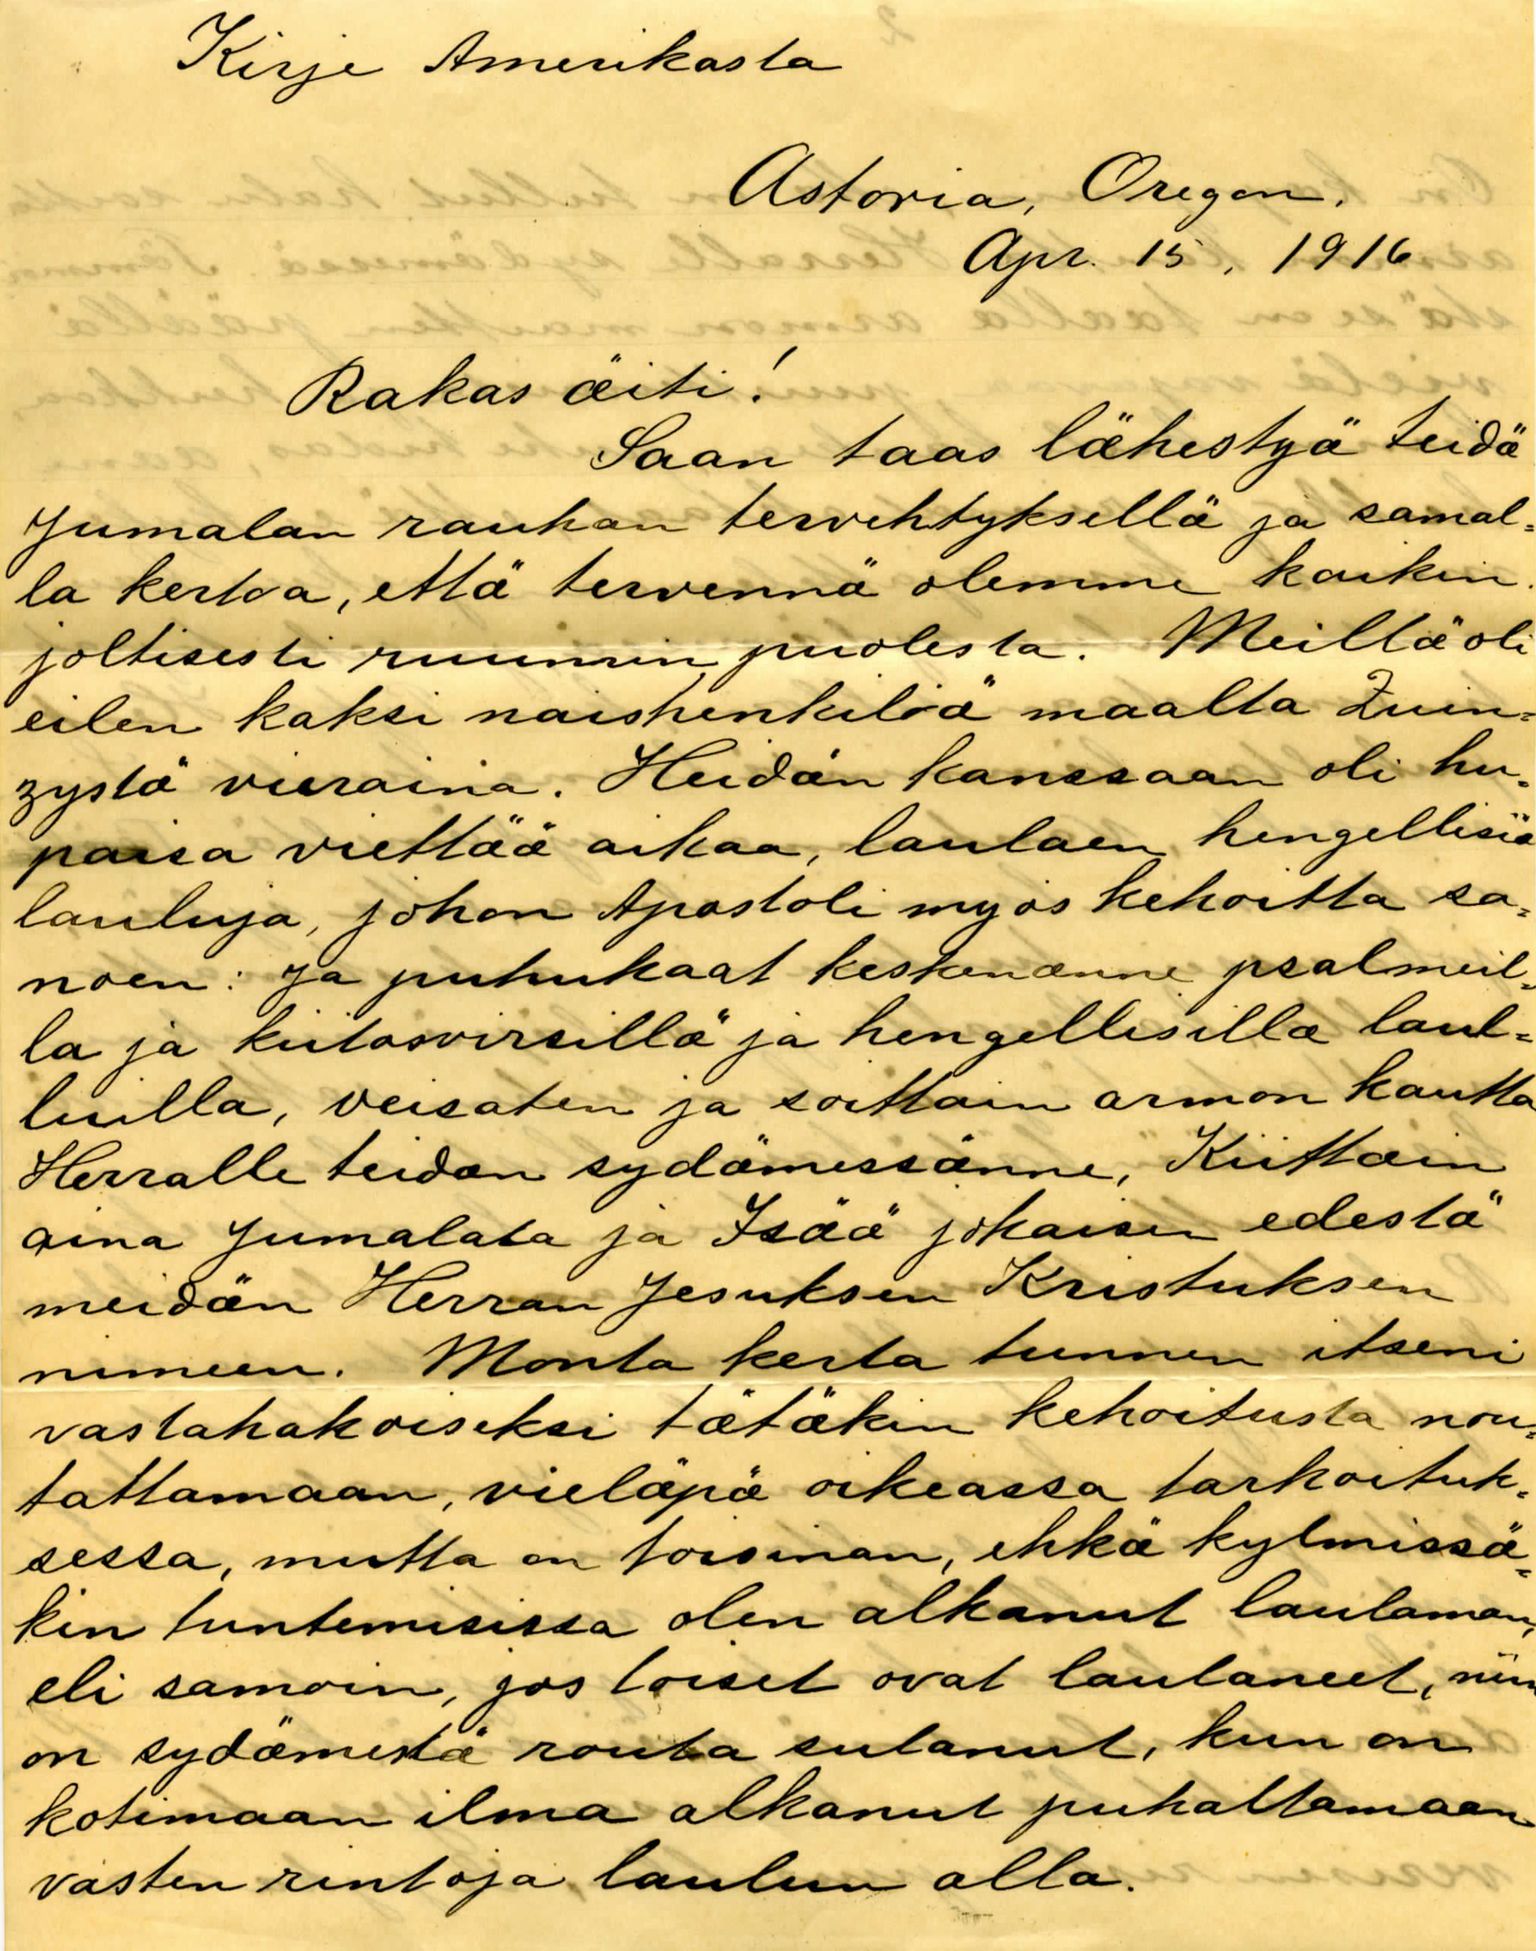 Kirje Amerikasta
Astoria, Oregon.
Apr. 15, 1916
Rakas äiti!
Saan taas lähestyä teidä
Jumalan rauhan tervehtyksellä ja samal=
la kertoa, että tervennä olemme kaikin
joltisesti ruumiin puolesta. Meillä oli
eilen kaksi naishenkilöä maalta Quin=
zystä vieraina. Heidän kanssaan oli hu=
paisa viettää aikaa, laulaen hengellisiä
lauluja, johon Apostoli myös kehoitta sa=
noen: Ja puhukaat keskenänne psalmeil=
la ja kiitosvirsillä ja hengellisillä laul=
luilla, veisaten ja soittain armon kautta
Herralle teidän sydämessänne, Kiittäin
aina Jumalata ja Isää jokaisen edestä
meidän Herran Jesuksen Kristuksen
nimeen. Monta kerta tunnen itseni
vastahakoiseksi tätäkin kehoitusta nou=
tattamaan, vieläpä oikeassa tarkoituk=
sessa, mutta on toisinan, ehkä kylmissä=
kin tuntemisissa olen alkanut laulaman,
eli samoin, jos toiset ovat laulaneet, niin
on sydämestä routa sulanut, kun on
kotimaan ilma alkanut puhaltamaan
vasten rintoja, laulun alla.